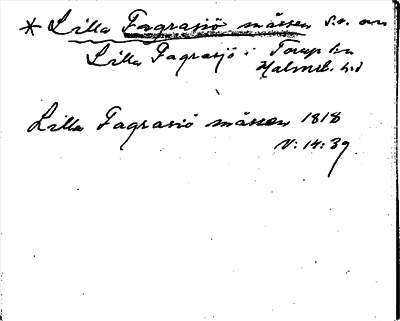 * Lilla Fagrasjö mässen s.o. om
Lilla Fagrasjö i Torup sn
Halmst. hd
Lilla Fagrasiö måssen 1818
V: 14: 39